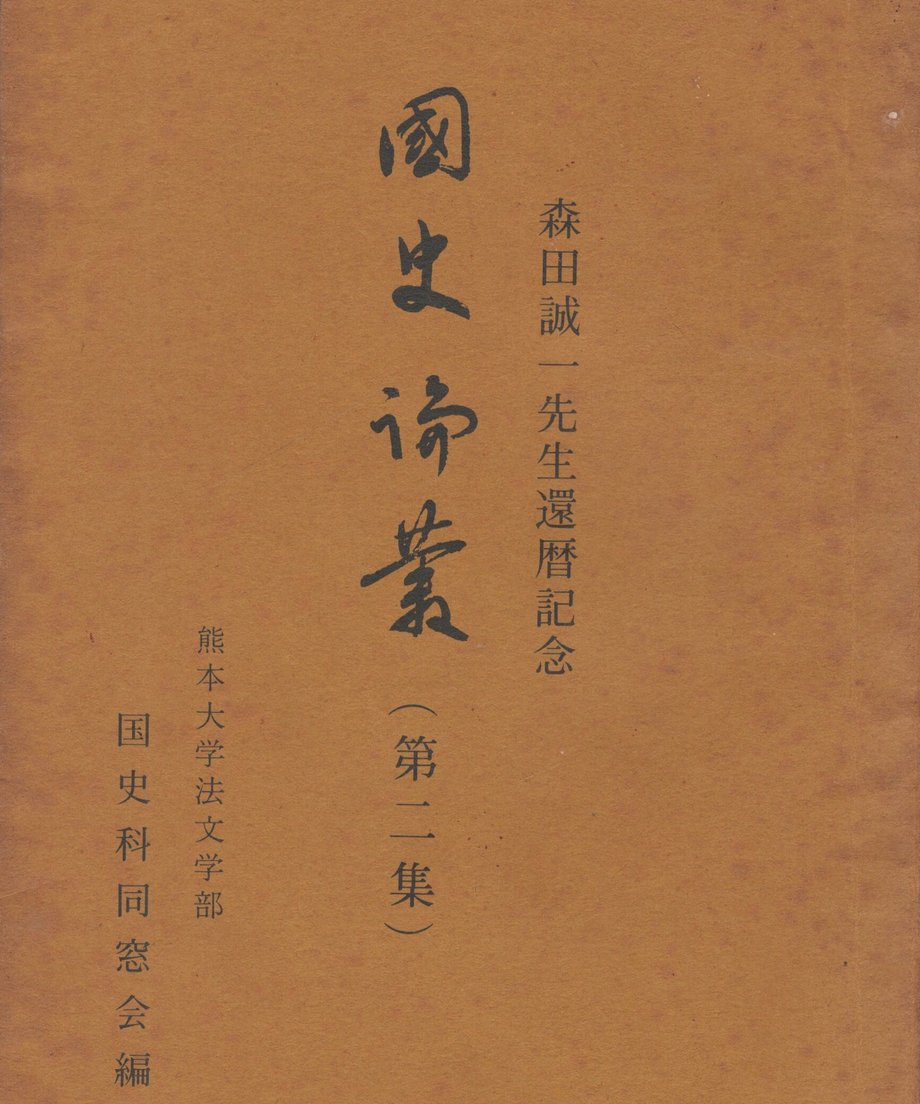 森田誠一先生還暦記念
國史論叢（第二集）
熊本大学法文学部
国史科同窓会編